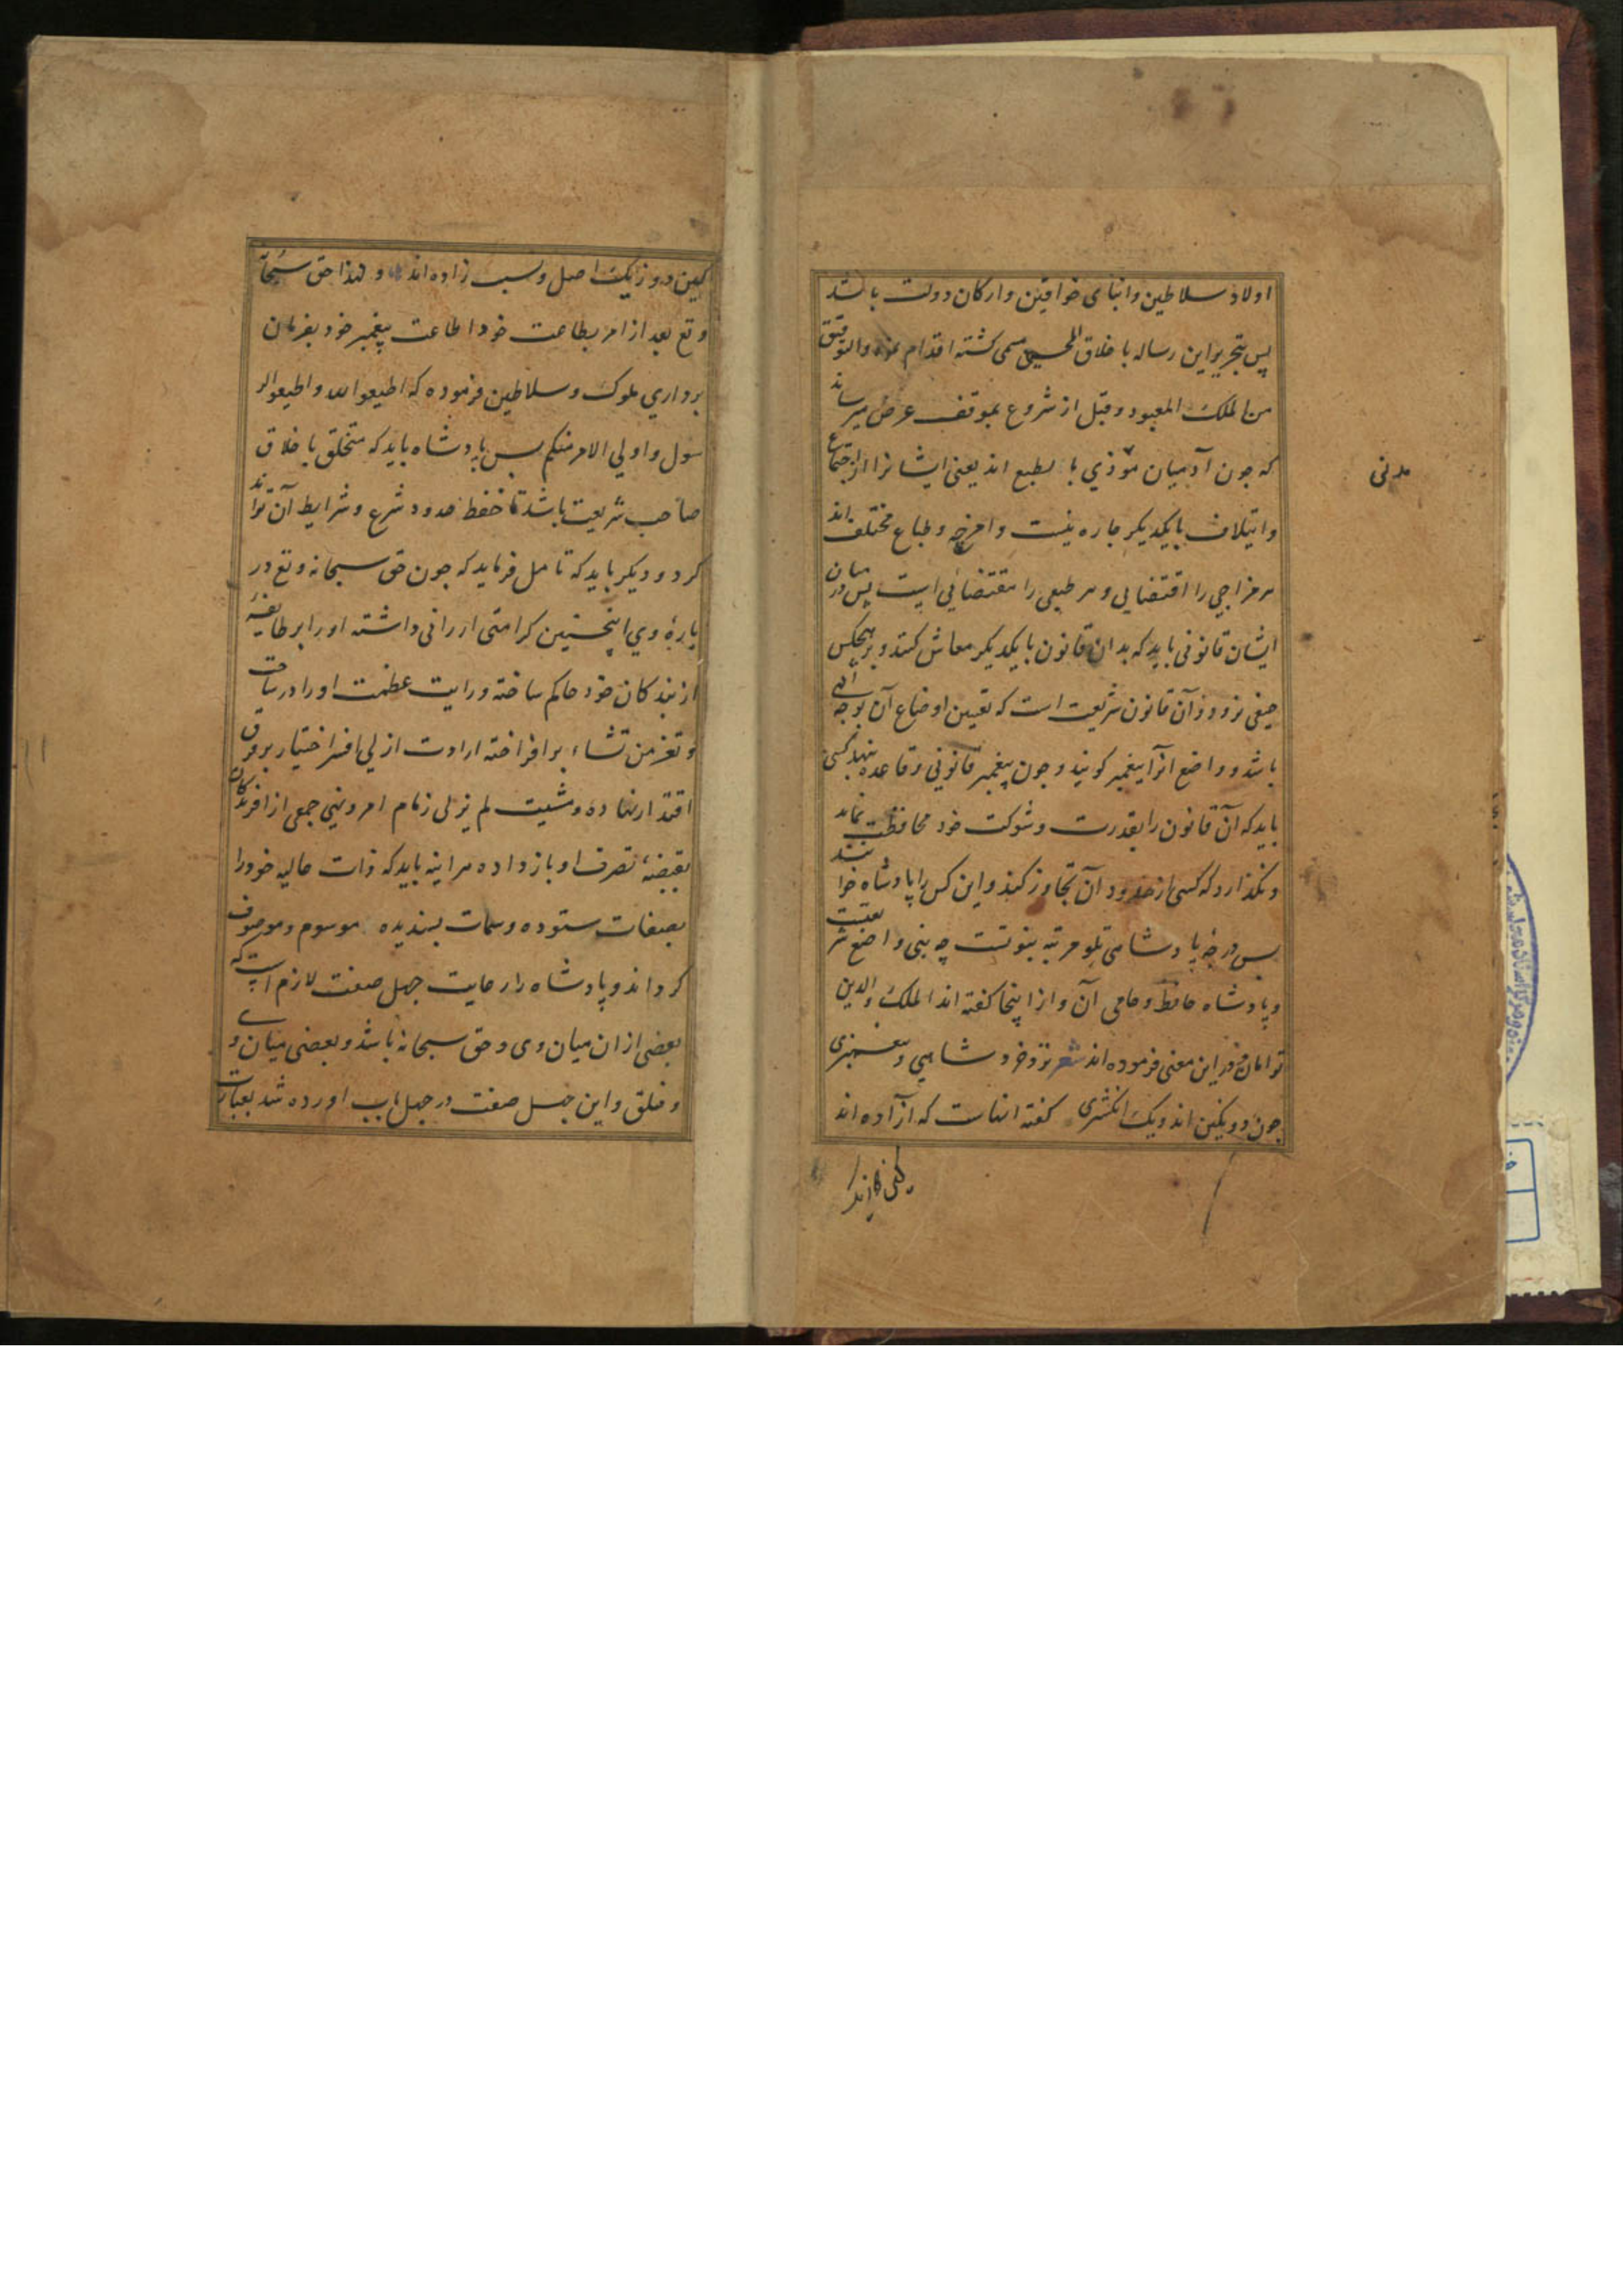 اولاد سلاطین وابنای خواقین وارکان دولت باشد
پس بتحریر این رساله باخلاق المحسنی مسمی کشته اقدام نمود والتوفیق
من الملک المعبود وقبل از شروع بموقف عرض میرساند
که جون آدمیان موذی بالطبع اند یعنی ایشانرا از اجتماع
وایتلاف بایکدیکر جاره نیست وامزجه وطباع مختلف اند
هر مزاجی را اقتضایی وهر طبعی را مقتضائی است پس در میان
ایشان قانونی باید که بدان قانون بایکدیکر معاش کنند و بر هیچکس
حیفی نرود وآن قانون شریعت است که تعیین اوضاع آن بوجه الهی
باشد وواضع انرا پیغمبر کویند وجون پیغمبر قانونی وقاعده بنهد کسی
باید که آن قانون را بقدرت وشوکت خود محافظت نماید
ونکذارد که کسی از حدود آن تجاوز کند واین کس را پادشاه خوانند
پس درجه پادشاهی تلو مرتبه نبوتست چه نبی واضع شریعتست
وپادشاه حافظ وحامی آن واز اینجا کفته اند الملک والدین
توامان ودر این معنی فرموده اند شعر نزد خرد شاهی وپیغمبری
جون دو نکین اند ویک انکشتری کفته انهاست که آزاده اند
مدنی
کین دو ز یک اصل ونسب زاده اند و لهذا حق سبحانه
وتع بعد از امر بطاعت خود اطاعت پیغمبر خود بفرمان
برداری ملوک وسلاطین فرموده که اطیعوا الله واطیعوا الر
سول واولی الامر منکم پس پادشاه باید که متخلق باخلاق
صاحب شریعت باشد تا حفظ حدود شرع وشرایط آن تواند
کرد ودیکر باید که تامل فرماید که جون حق سبحانه وتع در
بارهٔ وی اینچنین کرامتی ارزانی داشته اورا بر طایفهٔ
از بندکان خود حاکم ساخته ورایت عظمت اورا در ساحت
وتعز من تشاء برافراخته ارادت ازلی افسر اختیار بر فرق
اقتدار نهاده ومشیت لم یزلی زمام امر ونهی جمعی از افریدکان
بقبضهٔ تصرف او باز داده هر اینه باید که ذات حالیه خود را
بصفات ستوده وسمات پسندیده موسوم وموصوف
کرداند وپادشاه را رعایت جهل صفت لازم است که
بعضی از ان میان وی وحق سبحانه باشد وبعضی میان وی
وخلق واین جهل صفت در جهل باب اورده شد بعبارت